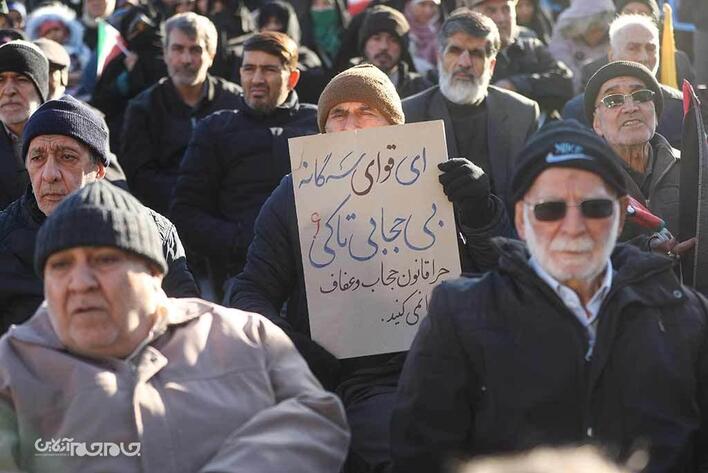 ای قوای سه گانه
بی حجابی تا کی؟
چرا قانون حجاب و عفاف
را نمی کنید.
جام جم آنلاین